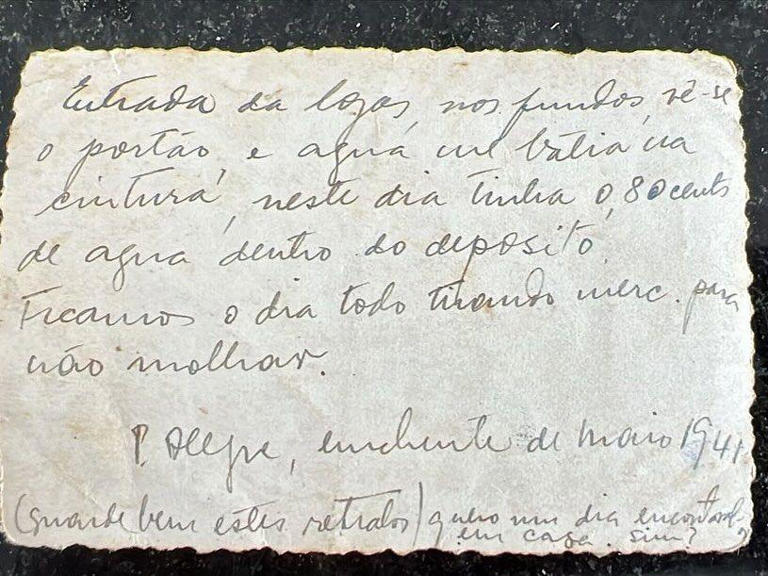 Entrada da lojas, nos fundos, vê-se
o portão, e agua me batia na
cintura, neste dia tinha 0,80 cents
de agua dentro do deposito
Ficamos o dia todo tirando merc. para
não molhar.
P. Alegre, enchente de maio 1941
(guarde bem estes retratos) quero um dia
em casa. sim?